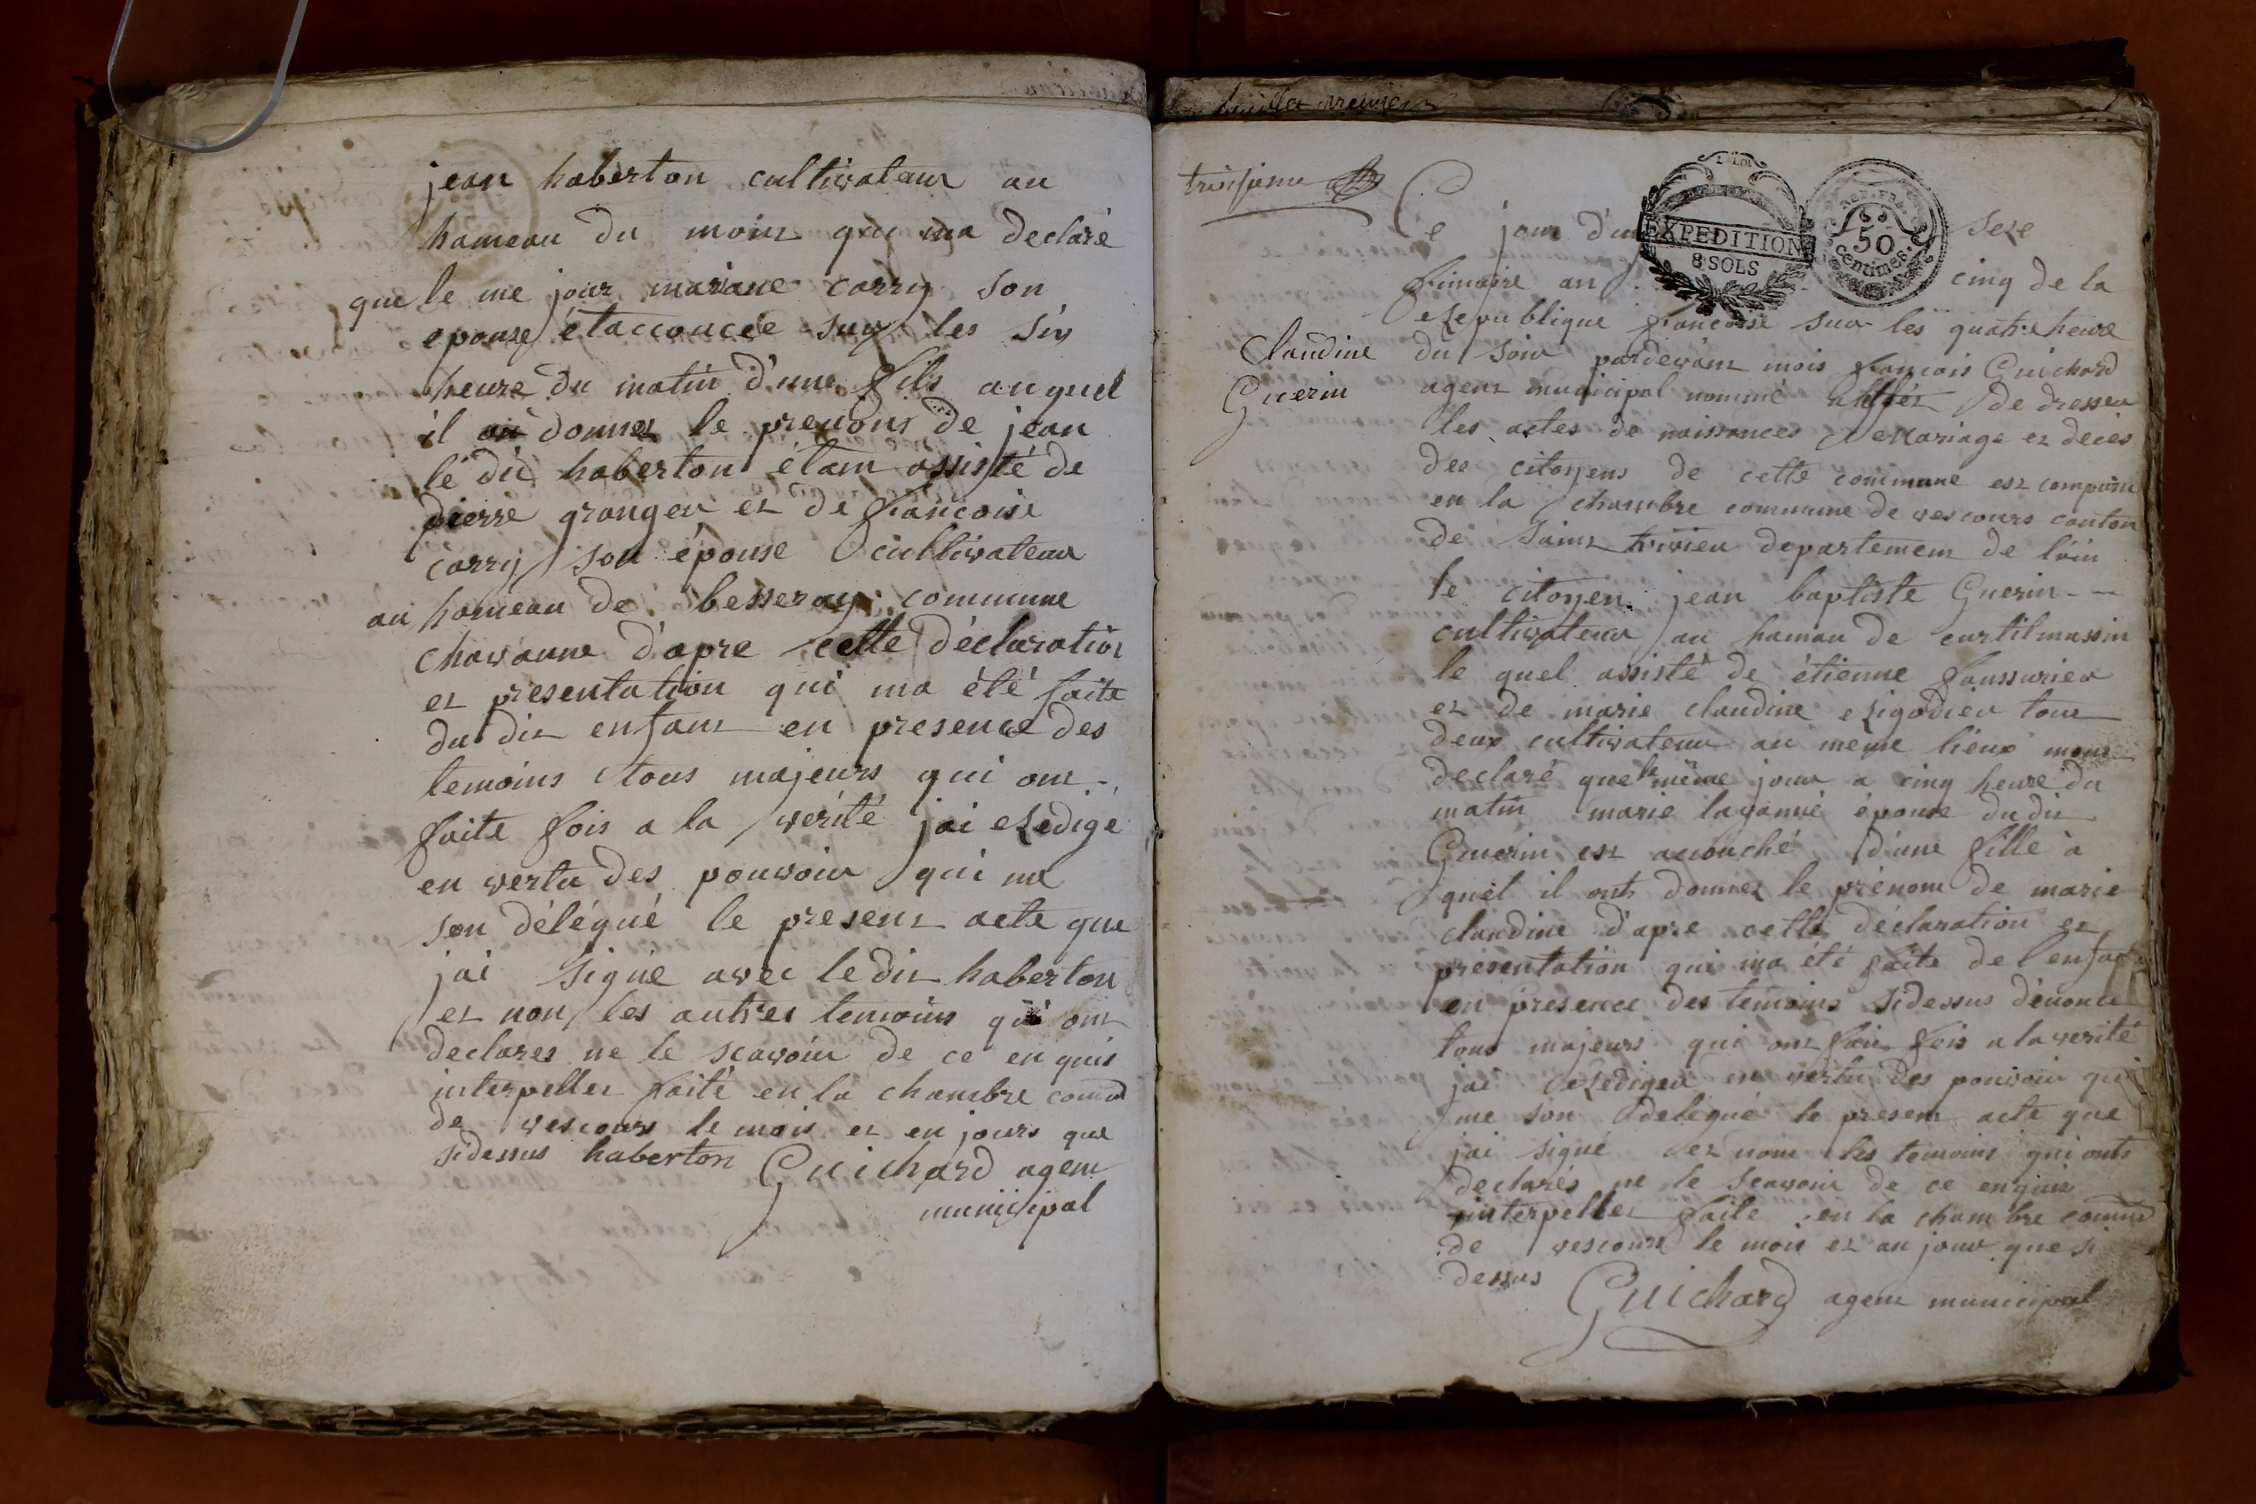 jean haberton cultivateur au
hameau du moin qui ma declaré
que le me jour mariane carry son
epouse étaccoucée sur les six
heure du matin d'une fils au quel
il on donner le prenoms de jean
le dit haberton étant assisté de
pierre granger et de francoise
carry son épouse cultivateur
au hameau de besseray commune
chavanne d'apre cette déclaration
et presentation qui ma été faite
du dit enfant en presence des
temoins tous majeurs qui ont
faite fois a la vérité jai Redigé
en vertu des pouvoir qui me
son délégué le present acte que
jai signe avec le dit haberton
et non les autres temoins qui ont
declares ne le scavoir de ce en quis
interpeller faite en la chambre comm
de vescours le mois et en jours que
sidessus haberton Guichard agent
municipal
troisieme
Ce jour d'ui seze
LA LOI
EXPEDITION
8 SOLS
REP. FRA.
50
Centimes
frimaire an cinq de la
Republique francoise sur les quatre heure
Claudine
Guerin
du soir pardevant mois francois Guichard
agent municipal nommé de dresser
les actes de naissances Mariage et deces
des citoyens de cette commune est comparu
en la chambre commune de vescours canton
de saint trivier departement de l'ain
le citoyen jean baptiste Guerin
cultivateur au hamau de curtilmassin
le quel assisté de étienne faussurier
et de marie claudine Rigodier tout
deux cultivateur au meme lieux mont
declaré que le même jour a cinq heure du
matin marie laganné épouse du dit
Guerin est acouché d'une fille à
quel il onts donner le prénom de marie
claudine d'apre cette déclaration et
presentation qui ma été faite de l'enfant
en presence des temoins sidessus dénoncé
tous majeurs qui ont fait fois a la verité
jai Rediger en vertu des pouvoir qui
me son delégué le present acte que
jai signé et non les temoins qui onts
declarés ne le scavoir de ce enquis
interpeller faite en la chambre comm
de vescours le mois et an jour que si
dessus Guichard agent municipal